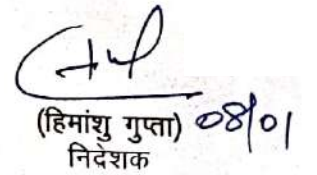 (हिमांशु गुप्ता) 08/01
निदेशक